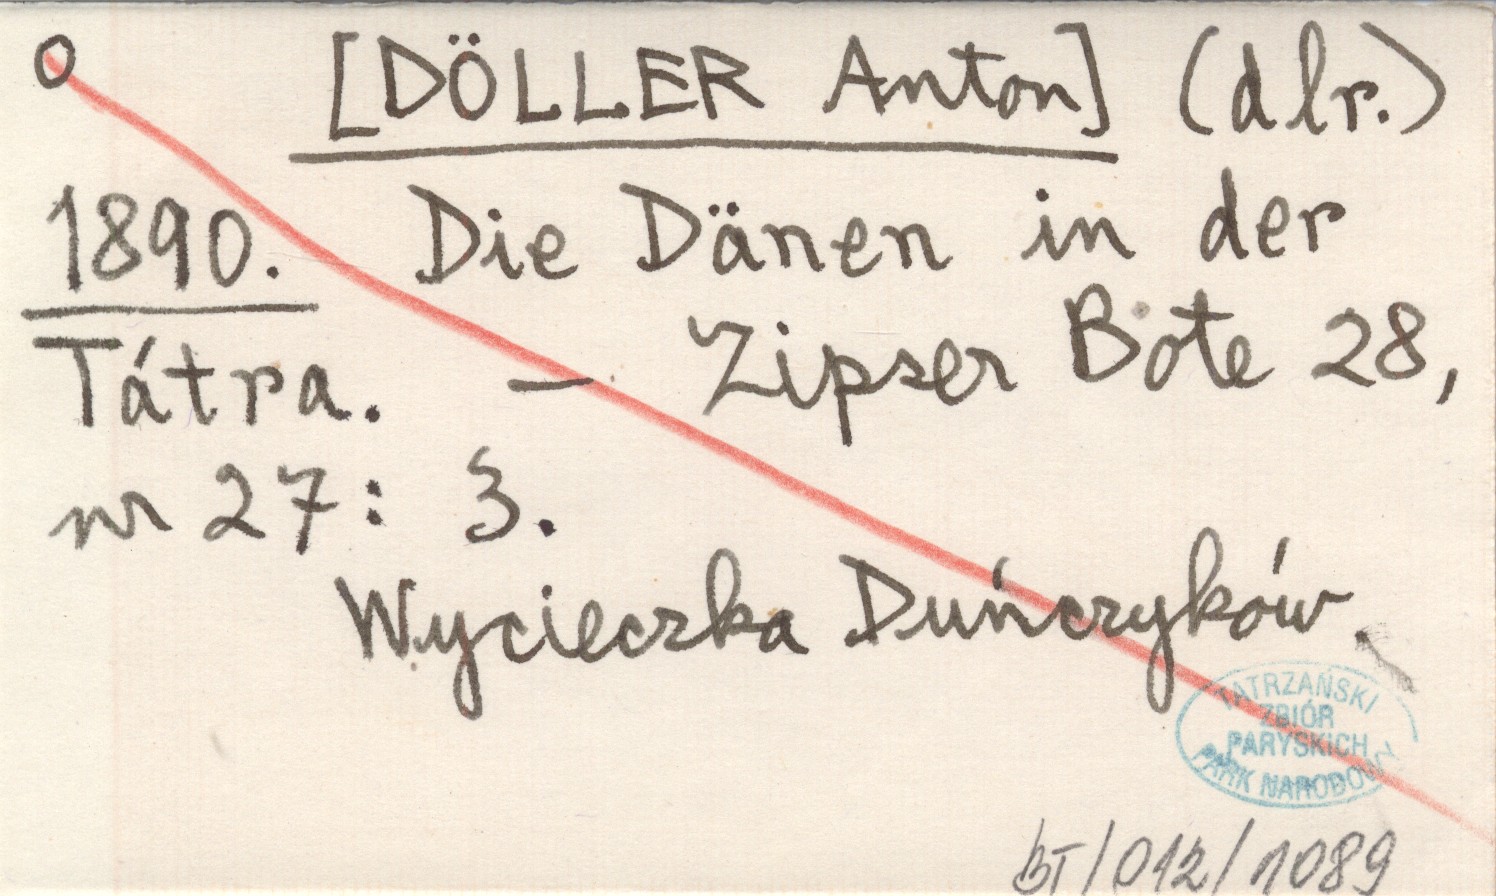 o [DÖLLER Anton] (dlr.)
1890. Die Dänen in der
Tátra. — Zipser Bote 28,
nr 27: 3.
Wycieczka Duńczyków.
TATRZAŃSKI
ZBIÓR
PARYSKICH
PARK NARODOWY
BT/012/1089